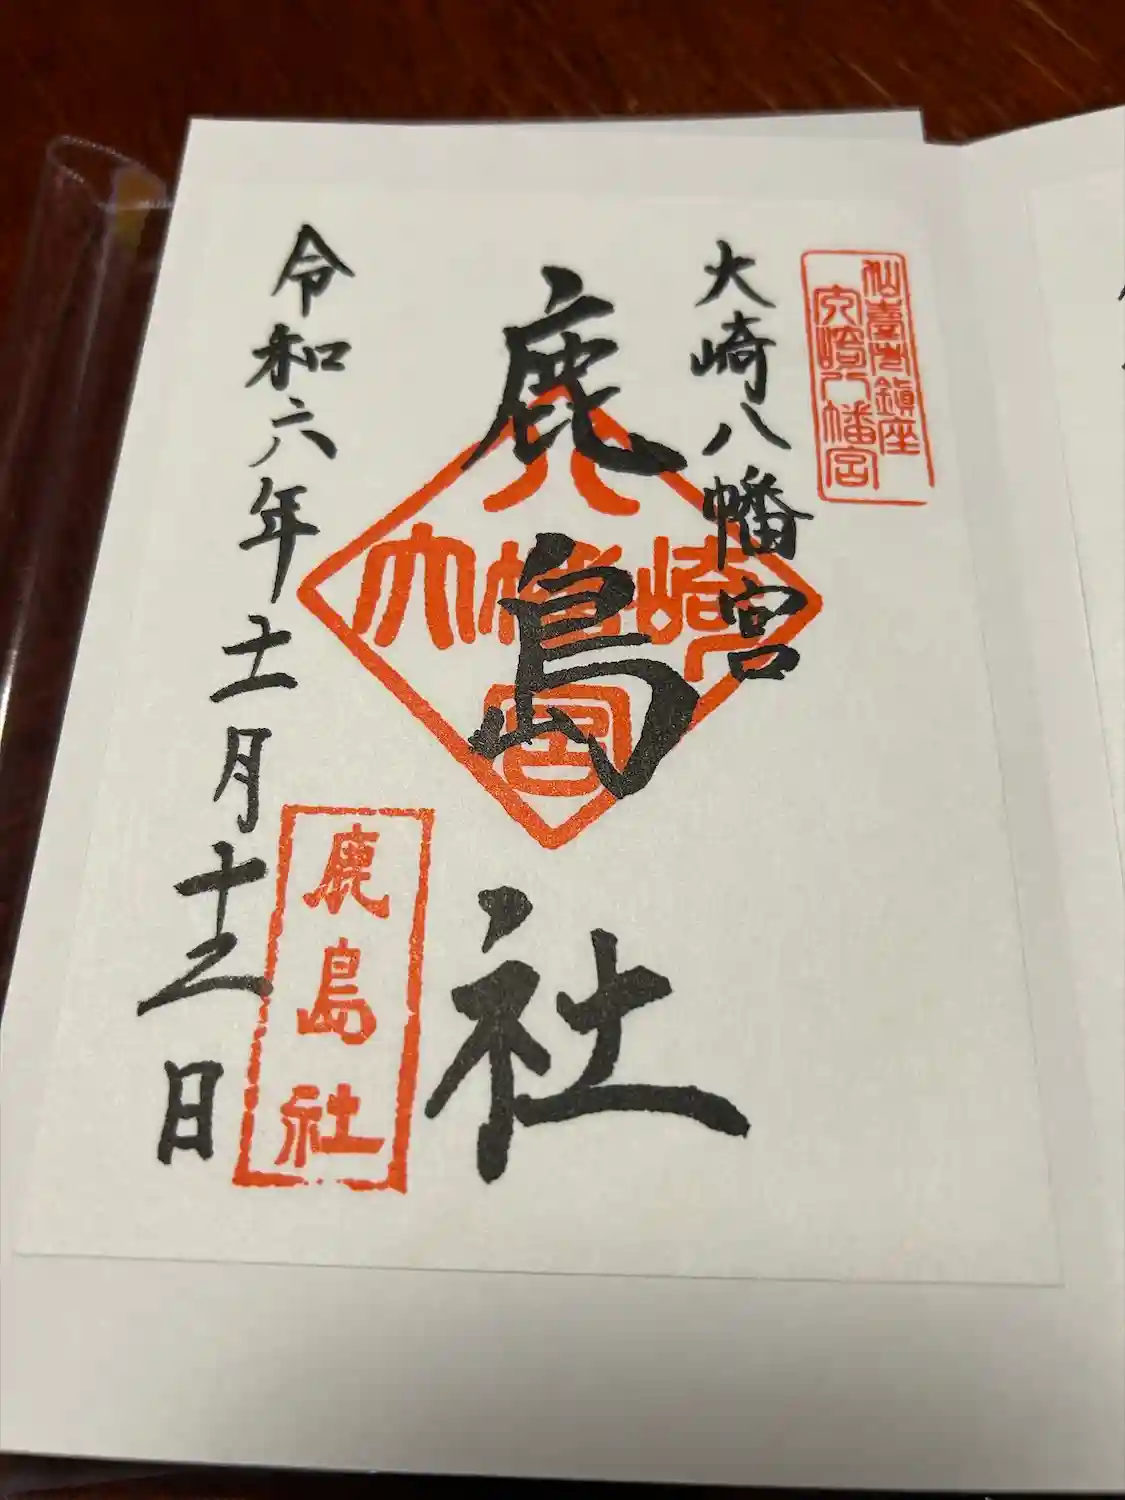 仙臺市鎮座
大崎八幡宮
大崎八幡宮
鹿島社
八
大幡崎
宮
令和六年十一月十三日
鹿島社